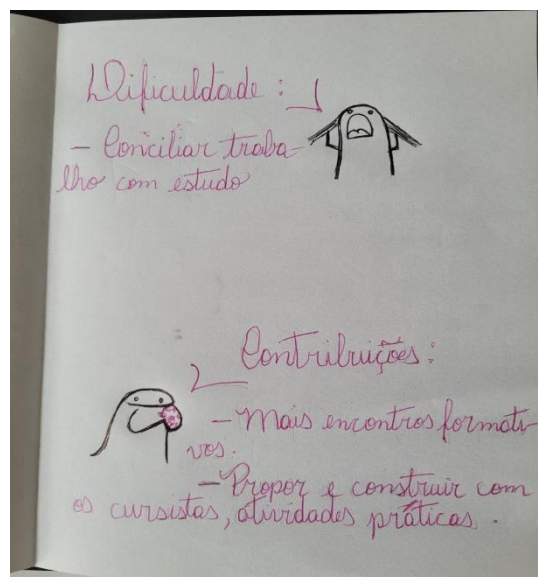 Dificuldade:
- Conciliar traba-
lho com estudo
Contribuições:
- Mais encontros formati-
vos.
- Propor e construir com
os cursistas, atividades práticas.